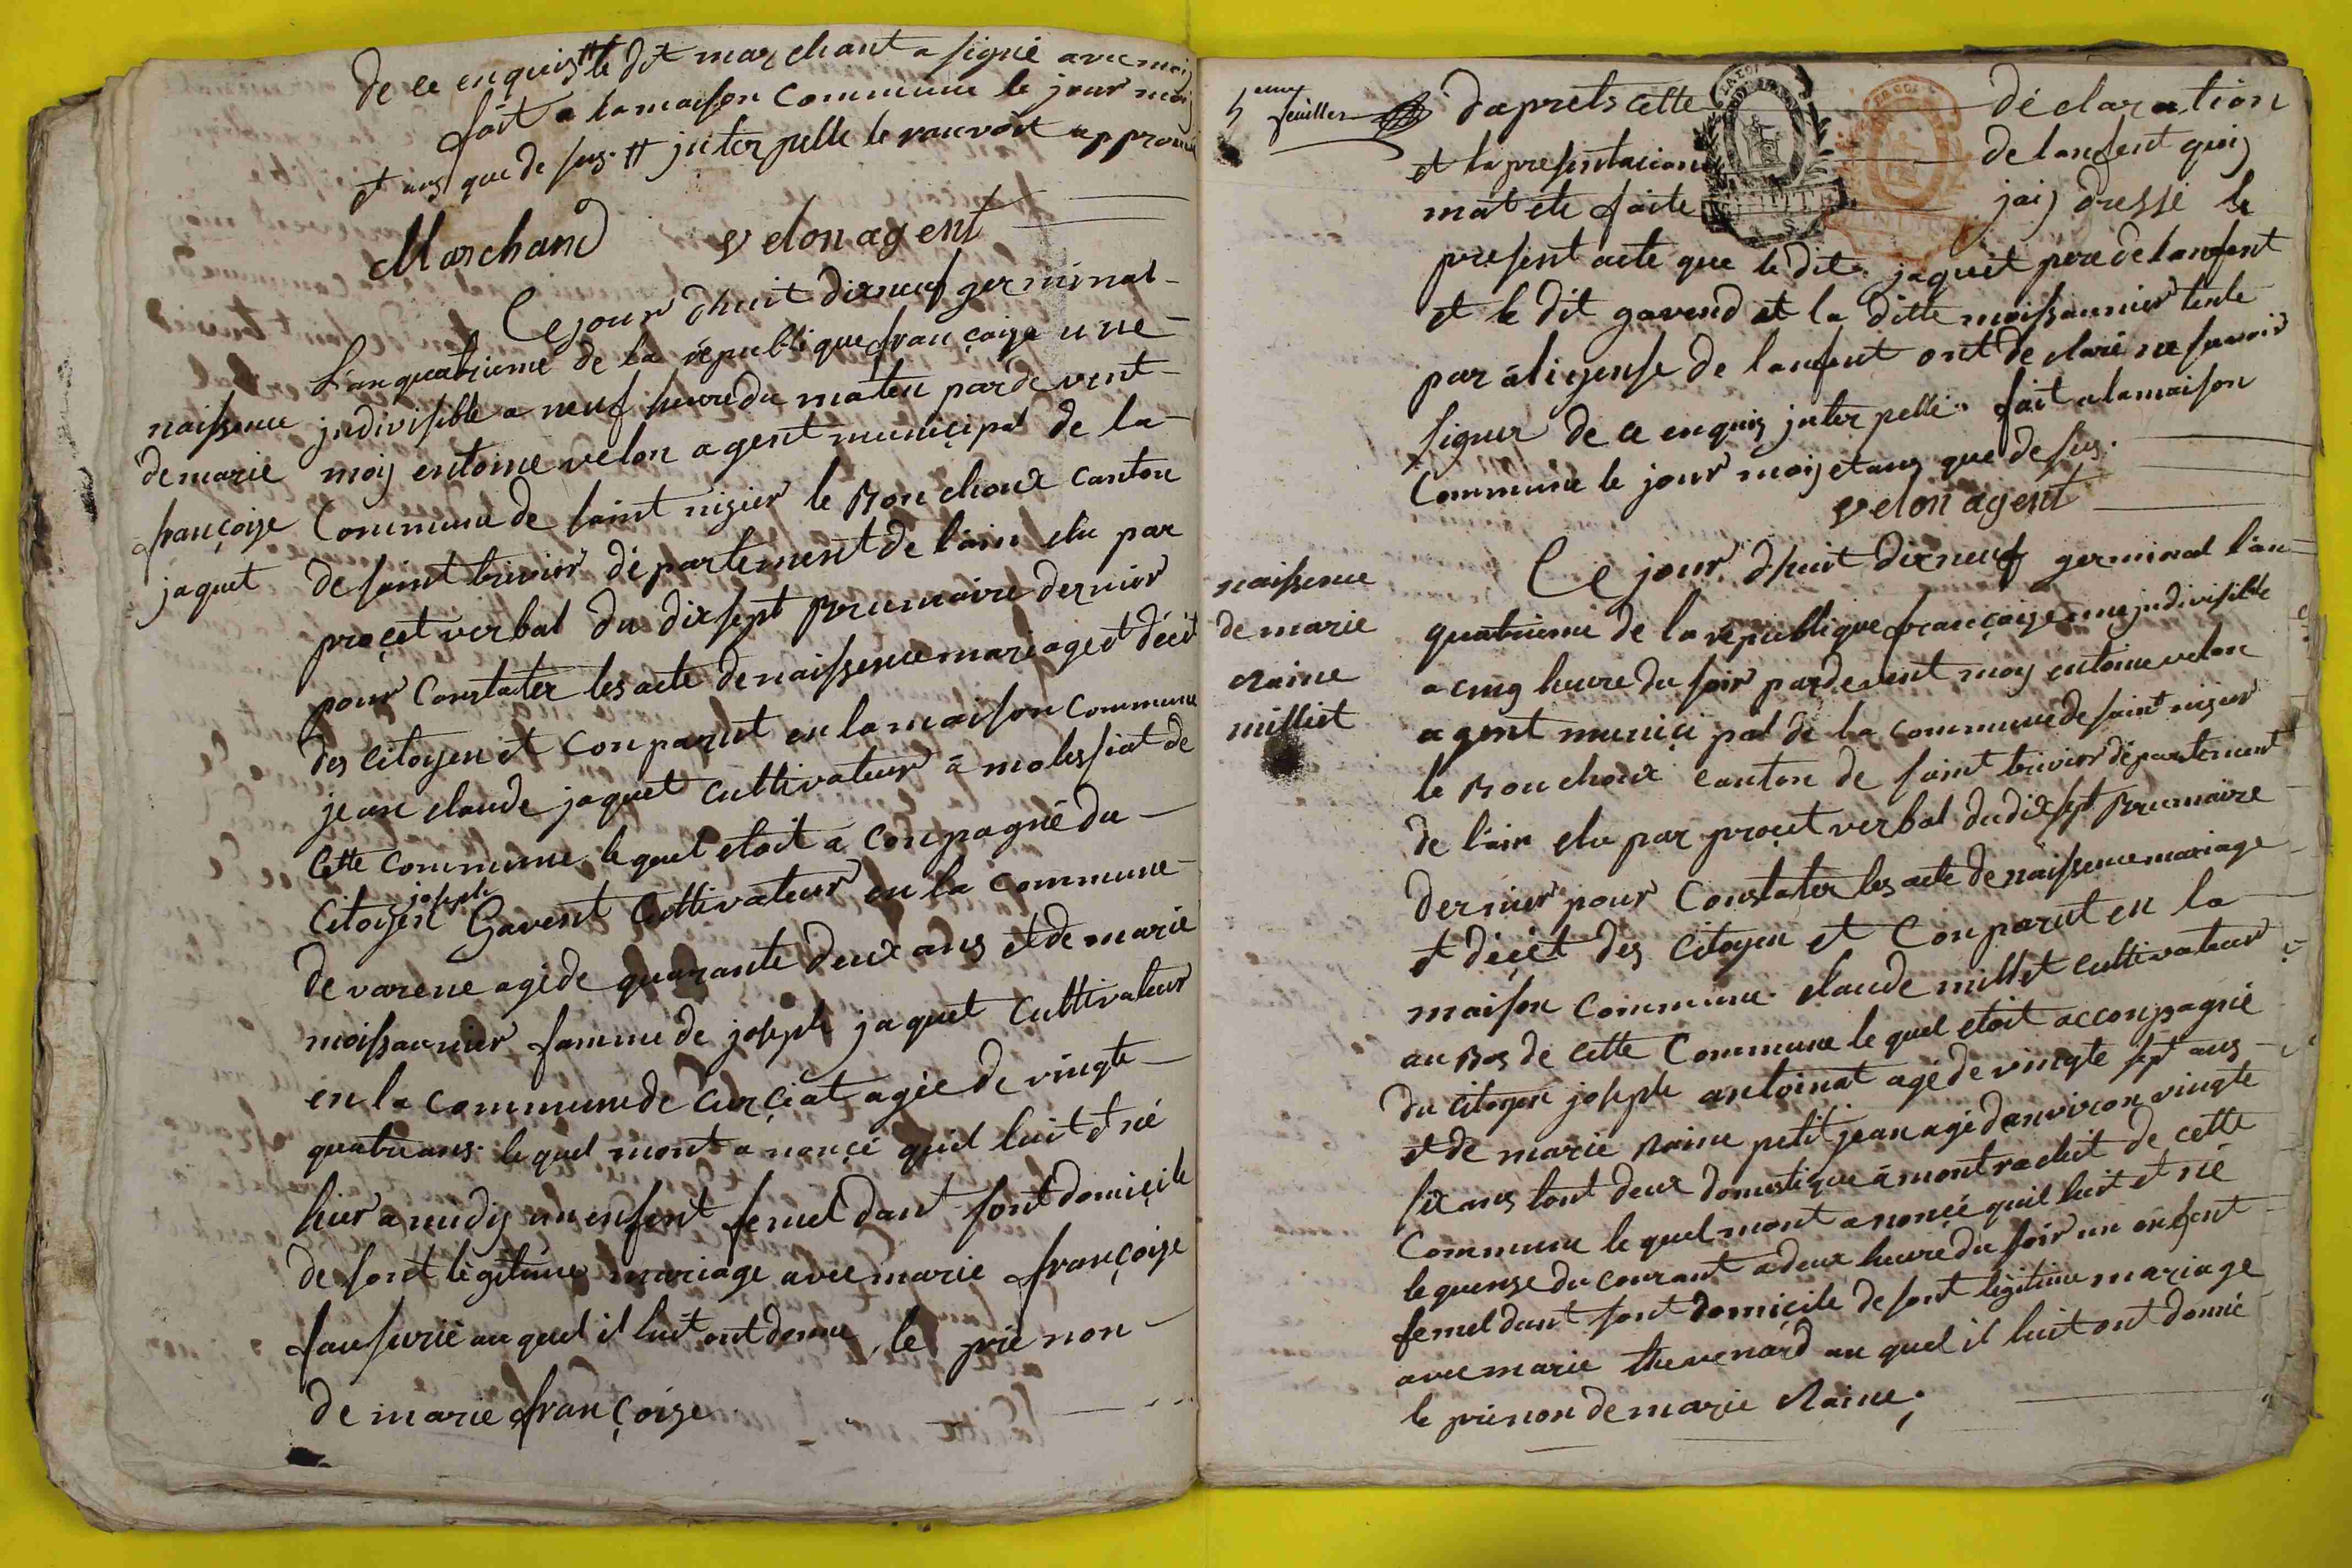 de ce enquis # le dit marchant a signé avec moij
fait a la maison Commune le jour mois
et ans que de sus. # jnterpelle le ranvoit approuvé
Marchand velon agent
Ce jour d'huit dixneuf germinal
L'an quatrieme de la republique françaize une
naissence
de marie
françoize
jaquet
jndivisible a neuf heure du maten par devent
moij entoine velon agent municipal de la
Commune de saint nizier le Bouchoux canton
de saint trivier département de l'ain elu par
proçet verbal du dix sept Brumaire dernier
pour Constater les acte de naissence mariage et déçet
des citoyen et Conparut en la maison commune
jean claude jaquet cultivateur à molessiat de
Cette commune lequel etoit a Conpagné du
Citoyen joseph Gavent Cultivateur en la commune
de varene agé de quarante deux ans et de marie
moissonnier famme de joseph jaquet Cultivateur
en la commune de Curçiat agée de vingte
quatre ans. le quel mont a nonçé quil luit et né
hier a midij un enfent femel dant sont domiçile
de sont légitime mariage avec marie françoize
au quel il luit ont donné le prénon
de marie françoize
5 eme feuillet
daprets cette déclaration
et la presentacion de lanfent quij
mat ete faite jaij dressé le
présent acte que le dit jaquet pere de lanfent
et le dit gavend et la ditte moissonnier tente
par aligense de lanfent ont de claré ne savoir
signer de ce enquis jnterpellé. fait a la maison
Commune le jour mois et ans que de sus.
velon agent
naissence
de marie
Raine
milliet
Ce jour d'huit dixneuf germinal l'an
quatrieme de la république françaize une jndivisible
a cinq heure du soir pardevent moij entoine velon
agent muniçipal de la commune de saint nizier
le Bouchoux canton de saint trivier département
de l'ain elu par proçet verbal du dix sept Brumaire
dernier pour Constater les acte de naissence mariage
et déçet des citoyen et Conparut en la
maison commune claude milliet cultivateur
au Bos de cette Commune le quel etoit acconpagné
du citoyen joseph antoinat agé de vingte sept ans
et de marie Raine petit jean agé danviron vingte
six ans tont deux domestique à montrachit de cette
Commune le quel mont anoncé quil luit et né
le quense du courant a deux heure du soir un enfent
femel dant sont domiçile de sont légitime mariage
avec marie thevenard au quel il luit ont donné
le prénon de marie Raine.